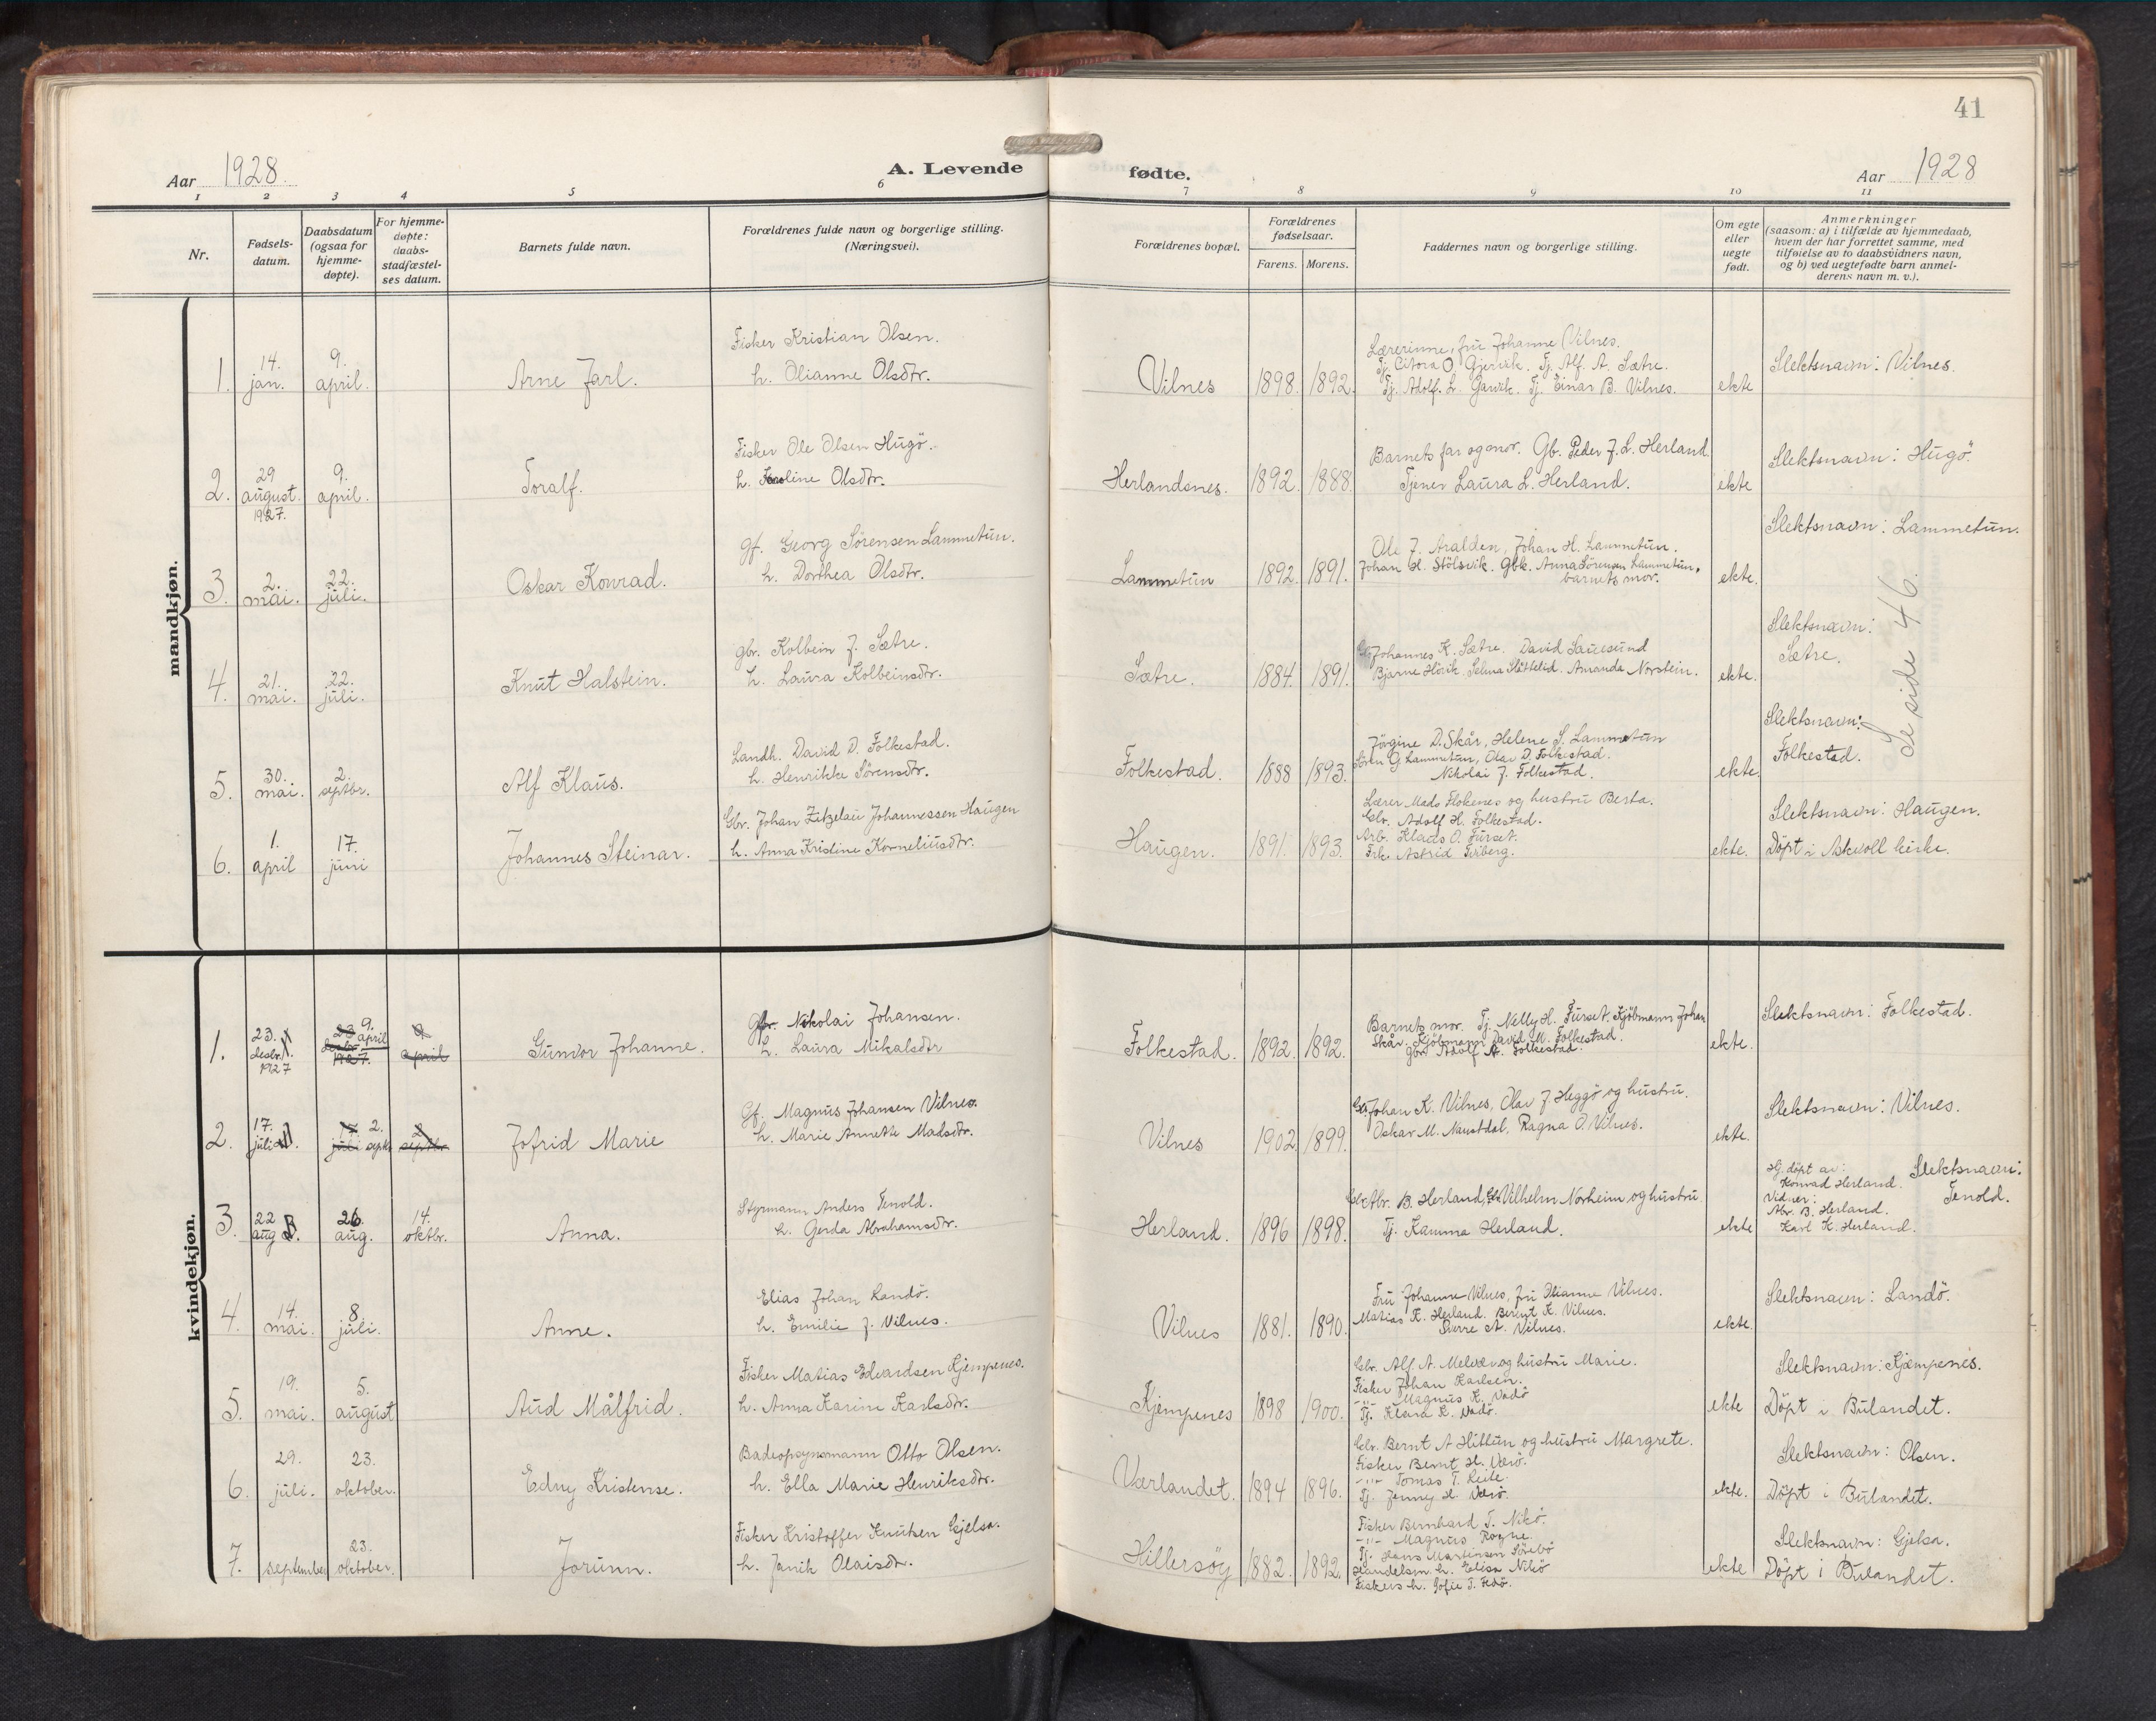 41
Aar 1928. A. Levende fødte. Aar 1928
1 2 3 4 5 6 7 8 9 10 11
Nr.
Fødsels-
datum.
Daabsdatum
(ogsaa for
hjemme-
døpte).
For hjemme-
døpte:
daabs-
stadfæstel-
ses datum.
Barnets fulde navn.
Forældrenes fulde navn og borgerlige stilling.
(Næringsvei).
Forældrenes bopæl.
Forældrenes
fødselsaar.
Farens. Morens.
Faddernes navn og borgerlige stilling.
Om egte
eller
uegte
født.
Anmerkninger
(saasom: a) i tilfælde av hjemmedaab,
hvem der har forrettet samme, med
tilføielse av to daabsvidners navn,
og b) ved uegtefødte barn anmel-
derens navn m. v.).
mandkjøn.
1.
14.
jan.
9.
april.
Arne Jarl.
Fisker Kristian Olsen.
h. Olianne Olsdtr.
Vilnes
1898. 1892.
Lærerinne, frue Johanne Vilnes.
Tj. Citora O. Gjervik. Tj. Alf. A. Sætre.
Tj. Adolf. L. Garvik. Tj. Einar B. Vilnes.
ekte
Slektsnavn: Vilnes.
2.
29
august.
1927.
9.
april.
Toralf.
Fisker Ole Olsen Hugö.
h. Karoline Olsdtr.
Herlandsnes.
1892. 1888.
Barnets far og mor. Gb. Peder J. L. Herland
Tjener Laura L. Herland.
ekte
Slektsnavn: Hugö.
3.
2.
mai.
22.
juli.
Oskar Konrad.
Gf. Georg Sörensen Lammetun.
h. Dorthea Olsdtr.
Lammetun
1892. 1891.
Ole J. Aralden, Johan H. Lammetun.
Johan H. Stölsvik. Gbk. Anna Sörensen Lammetun,
barnets mor.
ekte.
Slektsnavn: Lammetun.
4.
21.
mai.
22.
juli.
Knut Halstein.
Gbr. Kolbein J. Sætre.
h. Laura Kolbeinsdtr.
Sætre.
1884. 1891.
Johannes K. Sætre. David Sauesund
Bjarne Hovik. Selma Slåttelid. Amanda Norstein.
ekte.
Slektsnavn:
Sætre.
Se side 46.
5.
30.
mai.
2.
septbr.
Alf Klaus.
Landh. David D. Folkestad.
h. Henrikke Sörensdtr.
Folkestad.
1888 1893.
Jörgine D. Skår, Helene S. Lammetun
Sören G Lammetun, Olav D. Folkestad.
Nikolai J. Folkestad.
ekte.
Slektsnavn:
Folkestad.
6.
1.
april
17.
juni
Johannes Steinar.
Gbr. Johan Zitzelau Johannessen Haugen
h. Anna Kristine Korneliusdtr.
Haugen.
1891. 1893.
Lærer Mads Flokenes og hustru Berta.
Gbr. Adolf H. Folkestad.
Arb. Klaus O. Furset.
Frk. Astrid Friberg.
ekte.
Slektsnavn: Haugen.
Döpt i Askvoll kirke.
kvindekjøn.
1.
23.
desbr.
1927
9.
april
1927.
april
Gunvor Johanne.
Gbr. Nikolai Johansen.
h. Laura Mikalsdtr
Folkestad.
1892. 1892.
Barnets mor. Tj. Nelly H. Furset. Kjöbmann Johan
Skår. Kjöbmann David M. Folkestad.
gbr. Adolf A. Folkestad.
ekte.
Slektsnavn: Folkestad.
2.
17.
juli
juli 2. sept.
septbr.
Jofrid Marie
Gf. Magnus Johansen Vilnes.
h. Marie Annette Madsdtr.
Vilnes
1902. 1899.
Johan K. Vilnes, Olav J Heggö og hustru.
Oskar M. Naustdal. Ragna O. Vilnes.
ekte.
Slektsnavn: Vilnes.
3.
22
aug
26.
aug.
14.
oktbr.
Anna.
Styrmann Anders Tenold.
h. Gerda Abrahamsdtr.
Herland.
1896 1898.
Abr. B. Herland, Vilhelm Norheim og hustru
Tj. Kamma Herland.
ekte
Hj. döpt av:
Konrad Herland.
Vidner:
Abr. B. Herland.
Karl K. Herland.
Slektsnavn:
Tenold.
4.
14.
mai.
8.
juli.
Anne.
Elias Johan Landö.
h. Emilie J. Vilnes.
Vilnes
1881. 1890.
Fru Johanne Vilnes, fru Olianne Vilnes.
Matias K. Herland. Bernt K. Vilnes.
Sverre A. Vilnes.
ekte.
Slektsnavn: Landö.
5.
19.
mai.
5.
august
Aud Målfrid.
Fisker Matias Edvardsen Kjempenes.
h. Anna Karine Karlsdtr.
Kjempenes
1898 1900.
Gbr. Alf A. Melvær og hustru Marie.
Fisker Johan Karlsen.
-"- Magnus K. Vadö
Tj. Klara K. Vadö.
ekte
Slektsnavn: Kjæmpenes.
Döpt i Bulandet.
6.
29.
juli.
23.
oktober.
Edny Kristense.
Badeopsynsmann Otto Olsen.
h. Ella Marie Henriksdtr.
Værlandet.
1894 1896.
Gbr. Bernt A Hittun og hustru Margrete.
Fisker Bernt H. Værö.
-"- Tomas T. Leite.
Tj. Jenny H. Værö.
ekte.
Slektsnavn: Olsen.
Döpt i Bulandet.
7.
september
23.
oktober.
Jorunn.
Fisker Kristoffer Knutsen Gjelsa.
h. Janik Olaisdtr.
Hillersöy
1882. 1892.
Fisker Bernhard T. Nikö.
-"- Magnus Rogne.
Tj. Hans Martinsen Sörebö
Handelsm. h. Elisa Nikö
Fiskers h. Sofie T. Fedö.
ekte
Slektsnavn: Gjelsa.
Döpt i Bulandet.